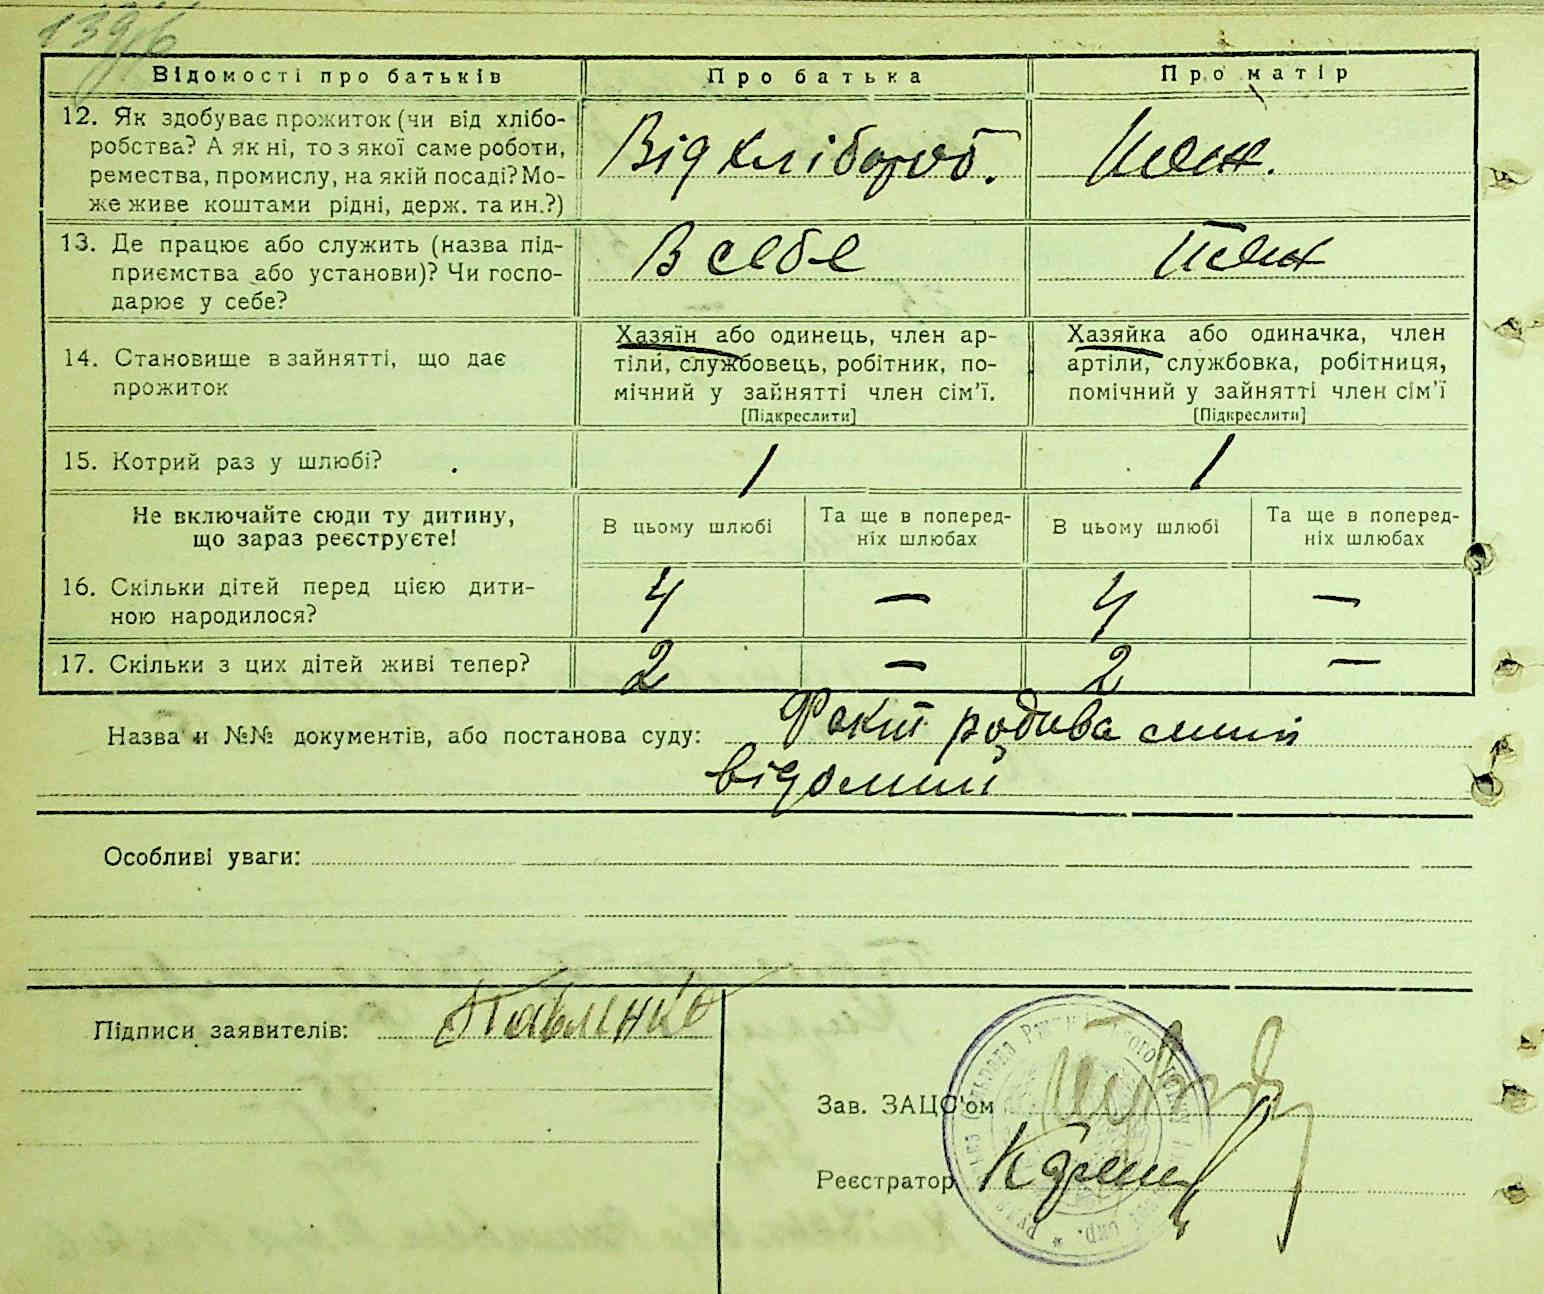 1396
Відомості про батьків
Про батька
Про матір
12. Як здобуває прожиток (чи від хлібо-
робства? А як ні, то з якої саме роботи,
ремества, промислу, на якій посаді? Мо-
же живе коштами рідні, держ. та ин.?)
Від хлібороб.
13. Де працює або служить (назва під-
приємства або установи)? Чи госпо-
дарює у себе?
В себе
14. Становище в зайнятті, що дає
прожиток
Хазяїн або одинець, член ар-
тілі, службовець, робітник, по-
мічний у зайнятті член сім'ї.
[Підкреслити]
Хазяйка або одиначка, член
артіли, службовка, робітниця,
помічний у зайнятті член сім'ї
[Підкреслити]
15. Котрий раз у шлюбі?
1
1
Не включайте сюди ту дитину,
що зараз реєструєте!
В цьому шлюбі
Та ще в поперед-
ніх шлюбах
В цьому шлюбі
Та ще в поперед-
ніх шлюбах
16. Скільки дітей перед цією дити-
ною народилося?
4
—
4
—
17. Скільки з цих дітей живі тепер?
2
—
2
—
Назва й №№ документів, або постанова суду:
відомий
Особливі уваги:
Підписи заявителів:
Павленко
Зав. ЗАЦС'ом
Реєстратор